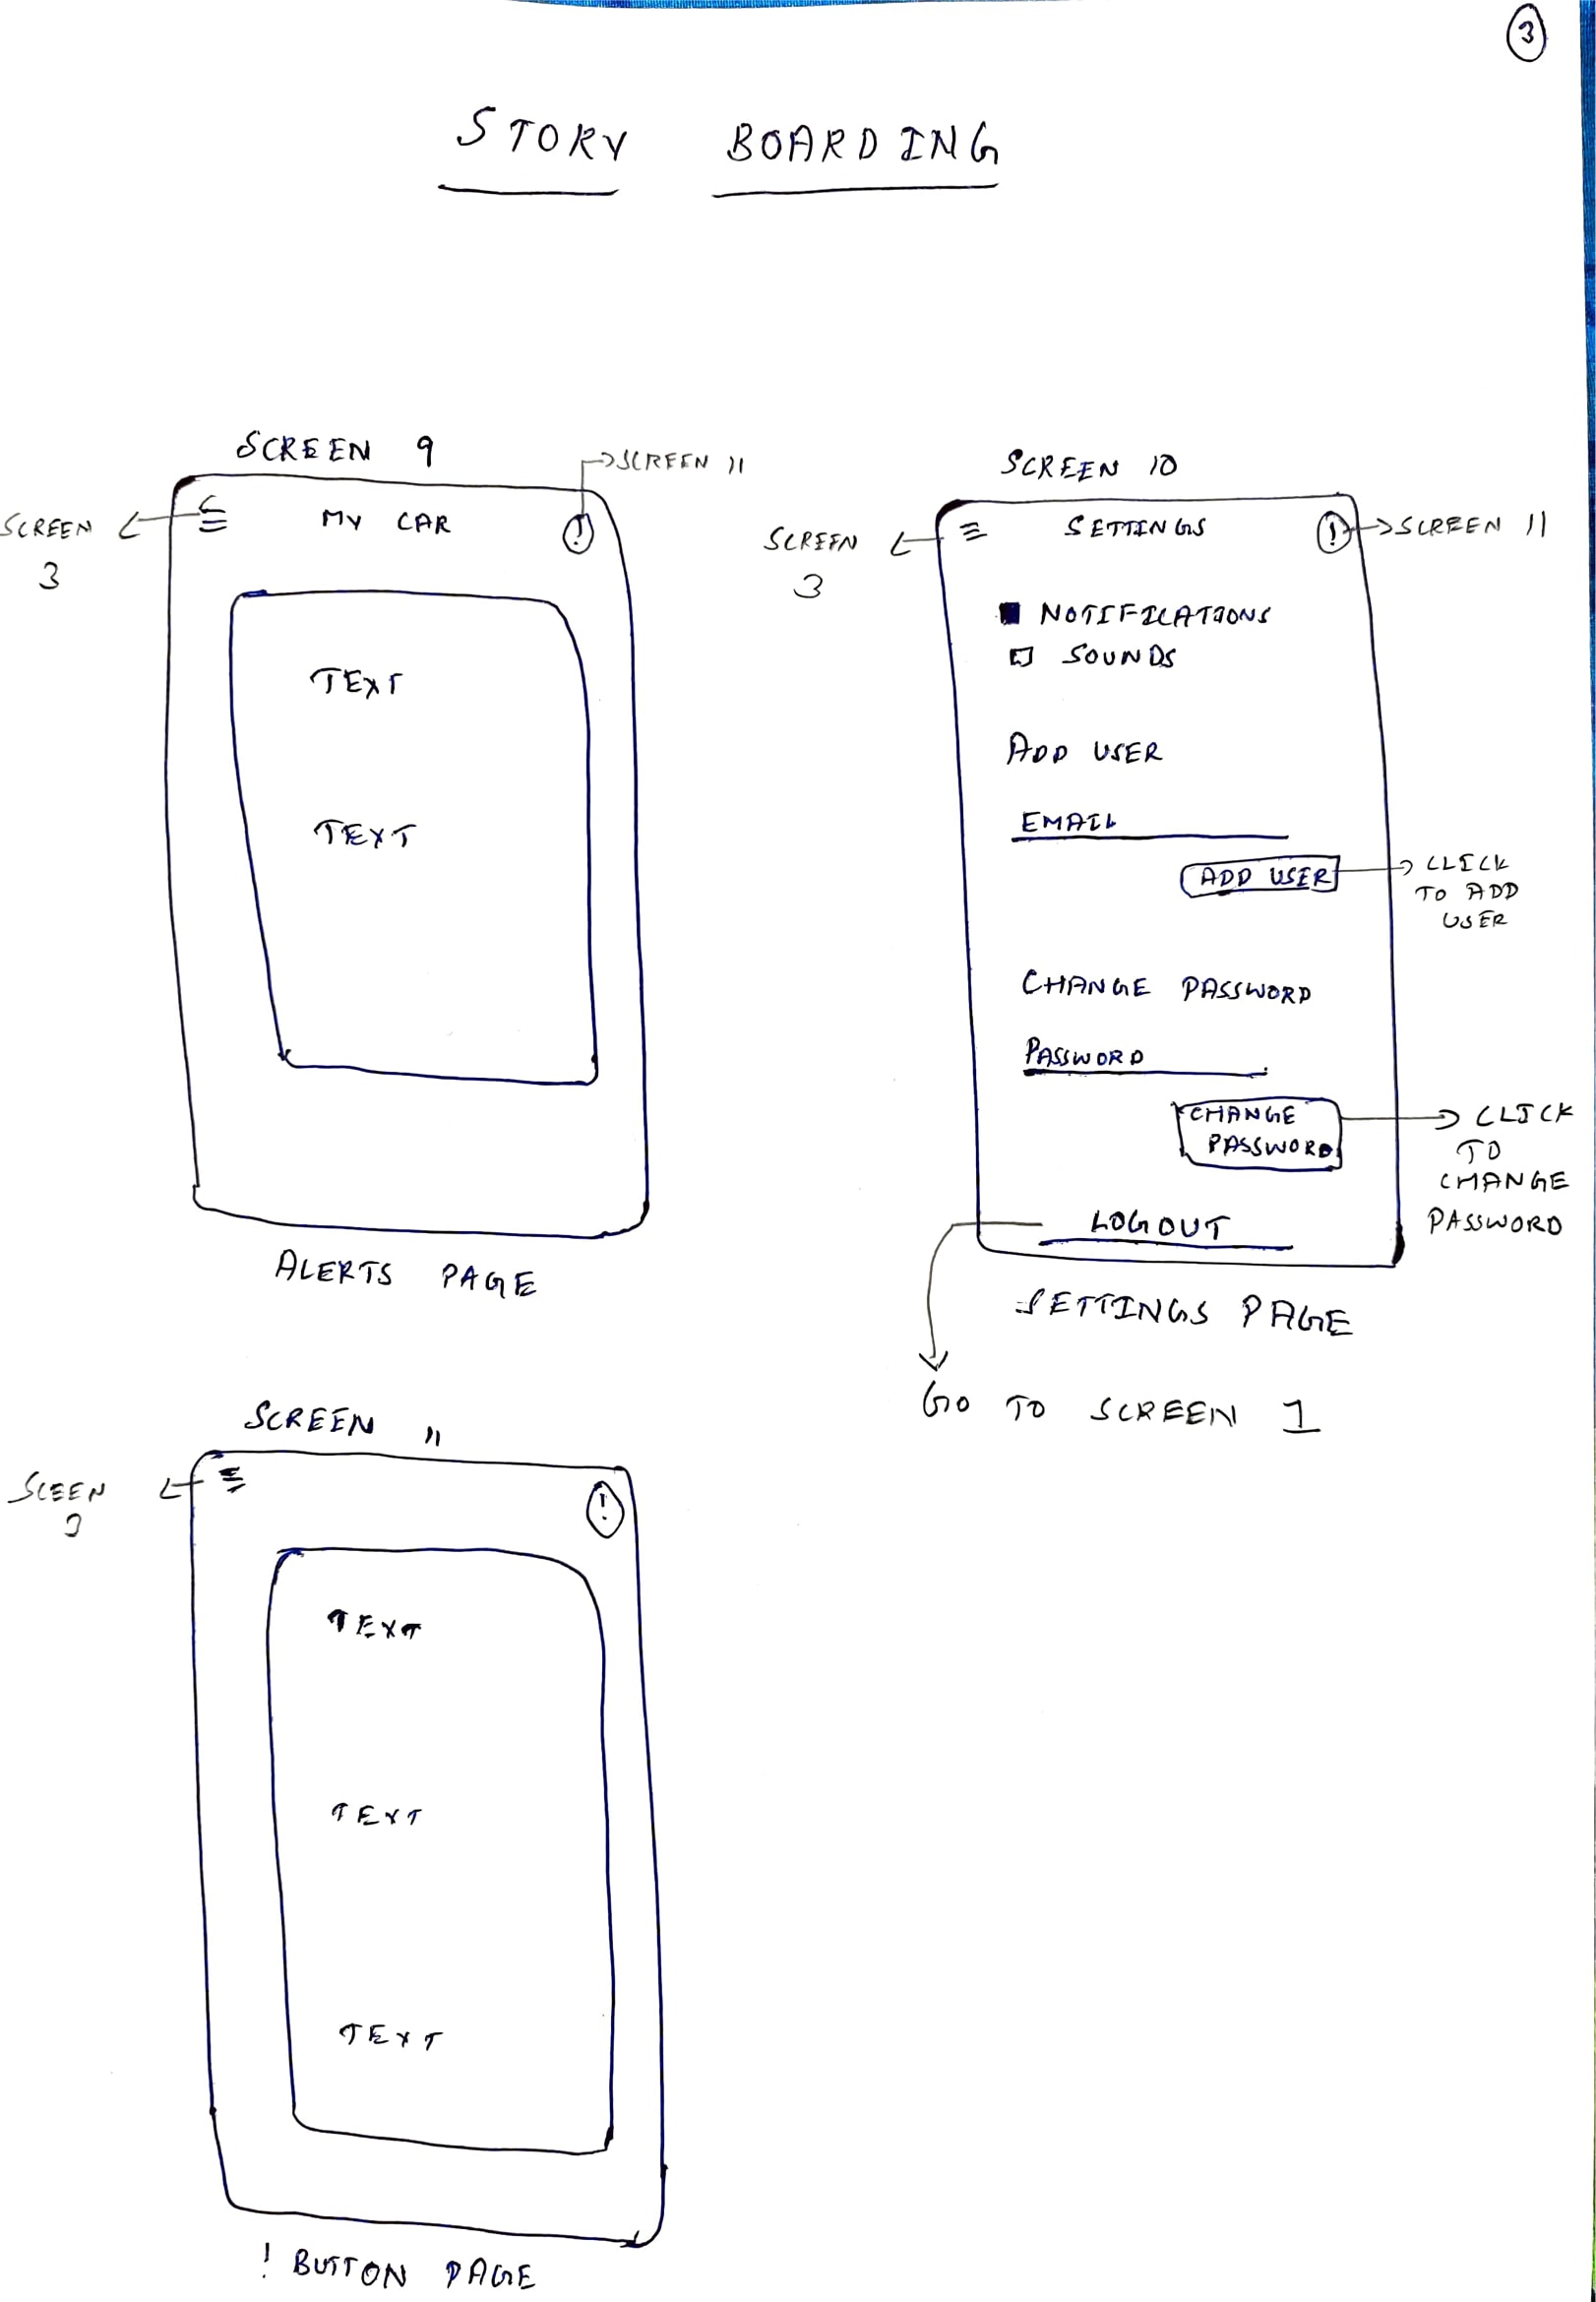 3
STORY BOARDING
SCREEN 9
SCREEN 11
SCREEN
3
MY CAR
!
TEXT
TEXT
ALERTS PAGE
SCREEN 10
SCREEN
3
SETTINGS
!
SCREEN 11
NOTIFICATIONS
SOUNDS
ADD USER
EMAIL
ADD USER
CLICK
TO ADD
USER
CHANGE PASSWORD
PASSWORD
CHANGE
PASSWORD
CLICK
TO
CHANGE
PASSWORD
LOGOUT
SETTINGS PAGE
GO TO SCREEN 1
SCREEN 11
SCEEN
3
!
TEXT
TEXT
TEXT
! BUTTON PAGE